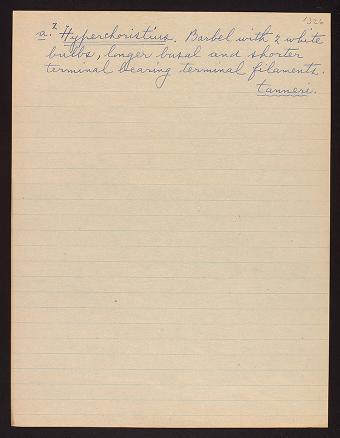 1326
a.² Hyperchoristius. Barbel with 2 white
bulbs, longer basal and shorter
terminal bearing terminal filaments.
tanneri.